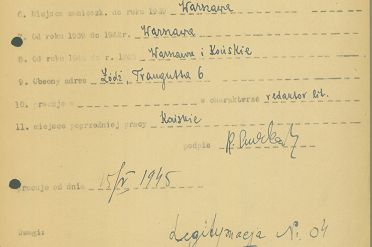 6. Miejsce zamieszk. do roku 1939 Warszawa
7. Od roku 1939 do 1944r. Warszawa
8. Od roku 1944 do r. 1945 Warszawa i Końskie
9. Obecny adres Łódź, Traugutta 6
10. pracuje w w charakterze redaktor lit.
11. miejsce poprzedniej pracy Końskie
podpis
Pracuje od dnia 15/V 1945
Uwagi: Legitymacja Nr. 04